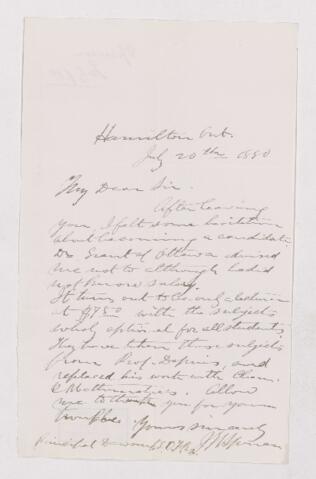 Hamilton Ont.
July 20th 1880
My Dear Sir.
After leaving
you, I felt some hesitation
about becoming a candidate
Dr. Grant of Ottawa advised
me not to although he did
not know salary.
It turns out to be only a lecturer
at $750 with the subjects
wholly optional for all students.
They have taken those subjects
from Prof. Dupuis, and
replaced his work with Chem.
& Mathematics. Allow
me to thank you for your
trouble. Yours sincerely
Principal Dawson